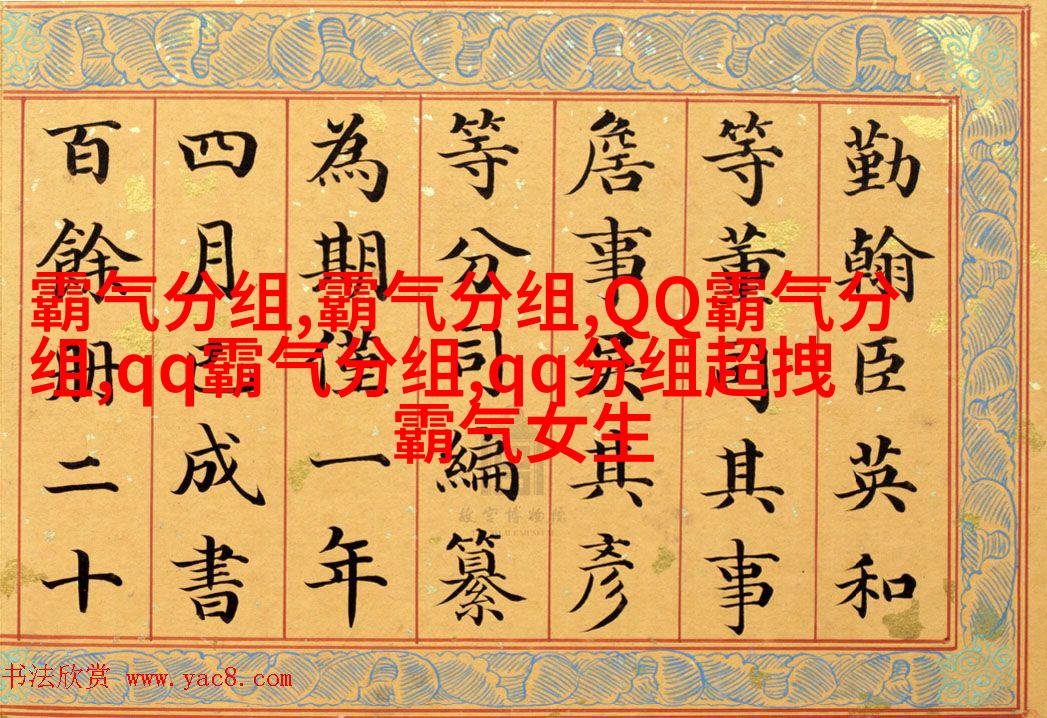 勤翰臣英和
等董司其事
詹事吳其彥
等分司編纂
為期僅一年
四月成書
百餘冊二十
霸气分组,霸气分组,QQ霸气分
组,qq霸气分组,qq分组超拽
霸气女生
故宫博物院
书法欣赏 www.yac8.com